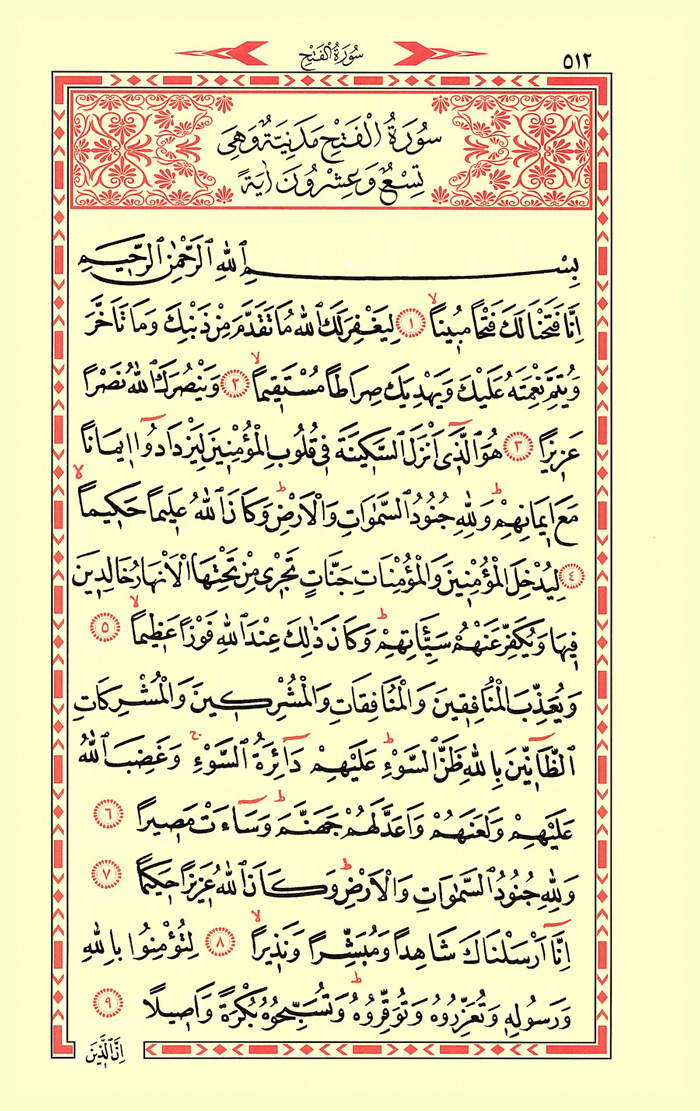 ٥١٢
سُورَةُ الْفَتْحِ
سُورَةُ الْفَتْحِ مَدَنِيَّةٌ وَهِيَ
تِسْعٌ وَعِشْرُونَ اٰيَةً
بِسْمِ اللهِ الرَّحْمٰنِ الرَّحِيمِ
اِنَّا فَتَحْنَا لَكَ فَتْحًا مُبِينًاۙ ﴿١﴾ لِيَغْفِرَ لَكَ اللهُ مَا تَقَدَّمَ مِنْ ذَنْبِكَ وَمَا تَاَخَّرَ
وَيُتِمَّ نِعْمَتَهُ عَلَيْكَ وَيَهْدِيَكَ صِرَاطًا مُسْتَقِيمًاۙ ﴿٢﴾ وَيَنْصُرَكَ اللهُ نَصْرًا
عَزِيزًا ﴿٣﴾ هُوَ الَّذِٓي اَنْزَلَ السَّكِينَةَ فِي قُلُوبِ الْمُؤْمِنِينَ لِيَزْدَادُٓوا اِيمَانًا
مَعَ اِيمَانِهِمْۜ وَلِلّٰهِ جُنُودُ السَّمٰوَاتِ وَالْاَرْضِۜ وَكَانَ اللهُ عَلِيمًا حَكِيمًاۙ
﴿٤﴾ لِيُدْخِلَ الْمُؤْمِنِينَ وَالْمُؤْمِنَاتِ جَنَّاتٍ تَجْرِي مِنْ تَحْتِهَا الْاَنْهَارُ خَالِدِينَ
فِيهَا وَيُكَفِّرَ عَنْهُمْ سَيِّـَٔاتِهِمْۜ وَكَانَ ذٰلِكَ عِنْدَ اللهِ فَوْزًا عَظِيمًاۙ ﴿٥﴾
وَيُعَذِّبَ الْمُنَافِقِينَ وَالْمُنَافِقَاتِ وَالْمُشْرِكِينَ وَالْمُشْرِكَاتِ
الظَّٓانِّينَ بِاللهِ ظَنَّ السَّوْءِۜ عَلَيْهِمْ دَٓائِرَةُ السَّوْءِۚ وَغَضِبَ اللهُ
عَلَيْهِمْ وَلَعَنَهُمْ وَاَعَدَّ لَهُمْ جَهَنَّمَۜ وَسَٓاءَتْ مَصِيرًا ﴿٦﴾
وَلِلّٰهِ جُنُودُ السَّمٰوَاتِ وَالْاَرْضِۜ وَكَانَ اللهُ عَزِيزًا حَكِيمًا ﴿٧﴾
اِنَّٓا اَرْسَلْنَاكَ شَاهِدًا وَمُبَشِّرًا وَنَذِيرًاۙ ﴿٨﴾ لِتُؤْمِنُوا بِاللهِ
وَرَسُولِهِ وَتُعَزِّرُوهُ وَتُوَقِّرُوهُۜ وَتُسَبِّحُوهُ بُكْرَةً وَاَصِيلًا ﴿٩﴾
اِنَّ الَّذِينَ